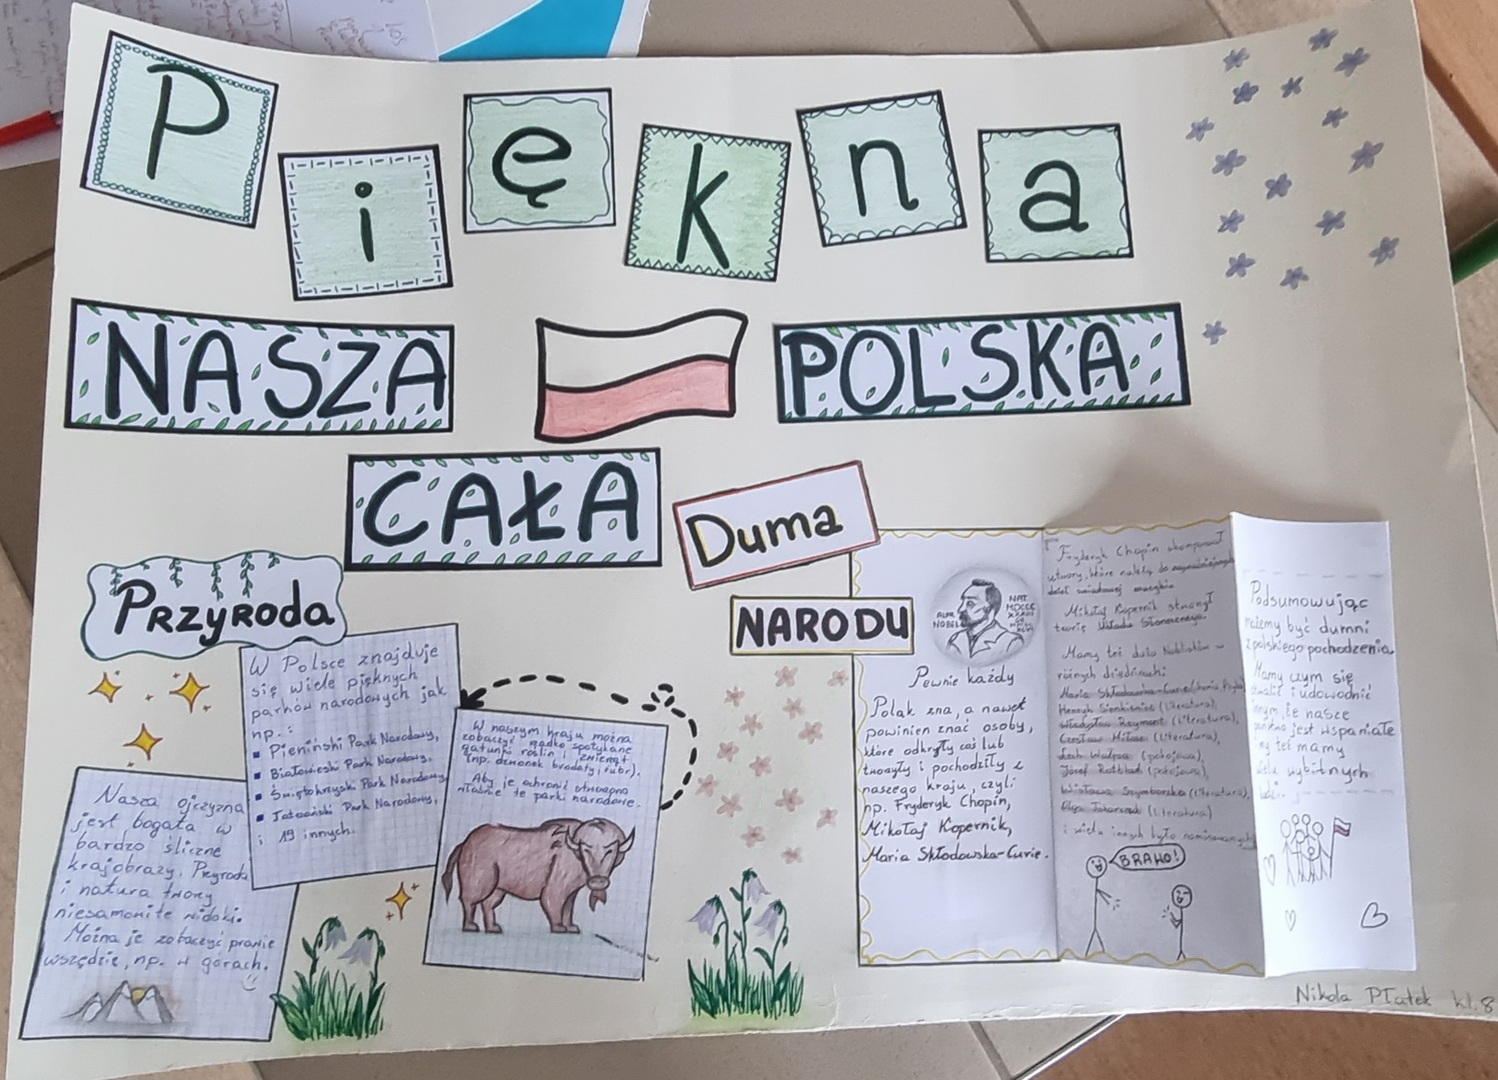 Piękna
NASZA
POLSKA
CAŁA
Duma
NARODU
Przyroda
Nasza ojczyzna
jest bogata w
bardzo śliczne
krajobrazy. Przyroda
i natura tworzy
niesamowite widoki.
Można je zobaczyć prawie
wszędzie, np. w górach.
W Polsce znajduje
się wiele pięknych
parków narodowych jak
np.:
Pieniński Park Narodowy,
Białowieski Park Narodowy,
Świętokrzyski Park Narodowy,
Tatrzański Park Narodowy,
i 19 innych.
W naszym kraju można
zobaczyć rzadko spotykane
gatunki roślin i zwierząt
(np. dzwonek brodaty i żubr).
Aby je ochronić utworzono
właśnie te parki narodowe.
ALFR.
NOBEL
NAT.
MDCCC
XXXIII
OB.
Pewnie każdy
Polak zna, a nawet
powinien znać osoby,
które odkryły coś lub
tworzyły i pochodziły z
naszego kraju, czyli
np. Fryderyk Chopin,
Mikołaj Kopernik,
Maria Skłodowska-Curie.
Fryderyk Chopin skomponował
utwory, które należą do najważniejszych
dzieł światowej muzyki.
Mikołaj Kopernik stworzył
teorię Układu Słonecznego.
Mamy też dużo Noblistów w
różnych dziedzinach:
Maria Skłodowska-Curie
Henryk Sienkiewicz (literatura),
Władysław Reymont (literatura),
Czesław Miłosz (literatura),
Lech Wałęsa (pokojowa),
Józef Rotblat (pokojowa),
Wisława Szymborska (literatura),
Olga Tokarczuk (literatura)
i wielu innych było nominowanych
BRAWO!
Podsumowując
możemy być dumni
z polskiego pochodzenia.
Mamy czym się
chwalić i udowodnić
innym, że nasze
jest wspaniałe
też mamy
wielu wybitnych
ludzi.
Nikola Piątek kl. 8